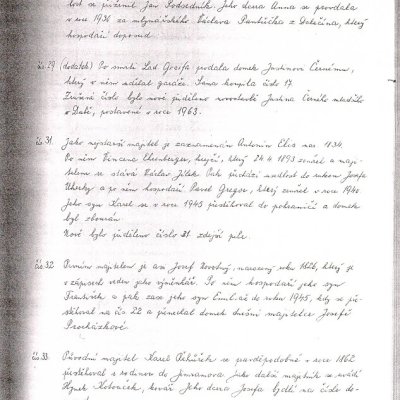 dost se přiženil Jan Podsedník. Jeho dcera Anna se provdala
v roce 1936 za mlynářského Václava Pantůčka z Dalečína, který
hospodařil doposud.
čs. 29 (dodatek) Po smrti Lad Groefa prodala domek Justinovi Černému,
který v něm udělal garáže. Sama koupila číslo 17.
Zrušené číslo bylo nově přiděleno novostavbě Justina Černého mladšího
v Dolě, postavené v roce 1963.
čs. 31. Jako nejstarší majitel je zaznamenán Antonín Elis nar 1834.
Po něm Vincenc Ehenberger, krejčí, který 24. 4. 1893 zemřel a maji-
telem se stává Václav Jílek. Pak přichází usedlost do rukou Josefa
Uherky a po něm hospodaří Pavel Gregor, který zemřel v roce 1940.
Jeho syn Karel se v roce 1945 přestěhoval do pohraničí a domek
byl zbourán.
Nově bylo přiděleno číslo 31 zdejší pile.
čs. 32 Prvním majitelem je asi Josef Novotný, narozený roku 1826, který je
v zápisech veden jako výměnkář. Po něm hospodaří jeho syn
František a pak zase jeho syn Emil až do roku 1945, kdy se pře-
stěhoval na čs 22 a přenechal domek dnešní majitelce Josefě
Procházkové.
čs. 33. Původní majitel Karel se pravděpodobně v roce 1862
přestěhoval s rodinou do Jimramova. Jako další majitel se uvádí
Hynek, kovář. Jeho dcera Josefa bydlí na čísle do-